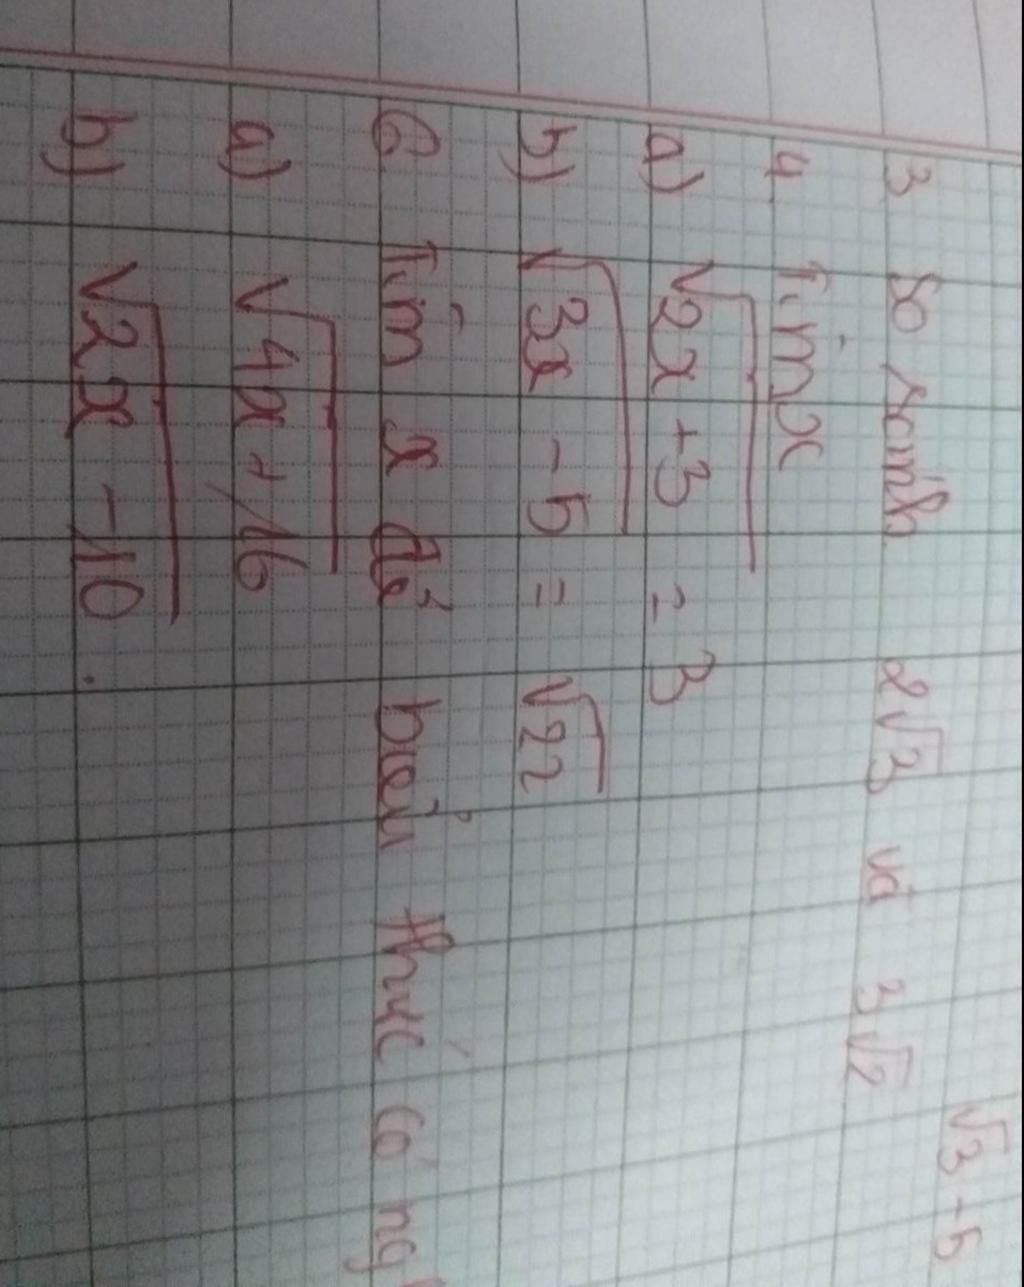 √3 - 5
3 so sánh 2√3 và 3√2
4. Tìm x
a) √2x + 3 = 3
b) √3x - 5 = √22
6. Tìm x để biểu thức có ng
a) √4x + 16
b) √2x - 10.